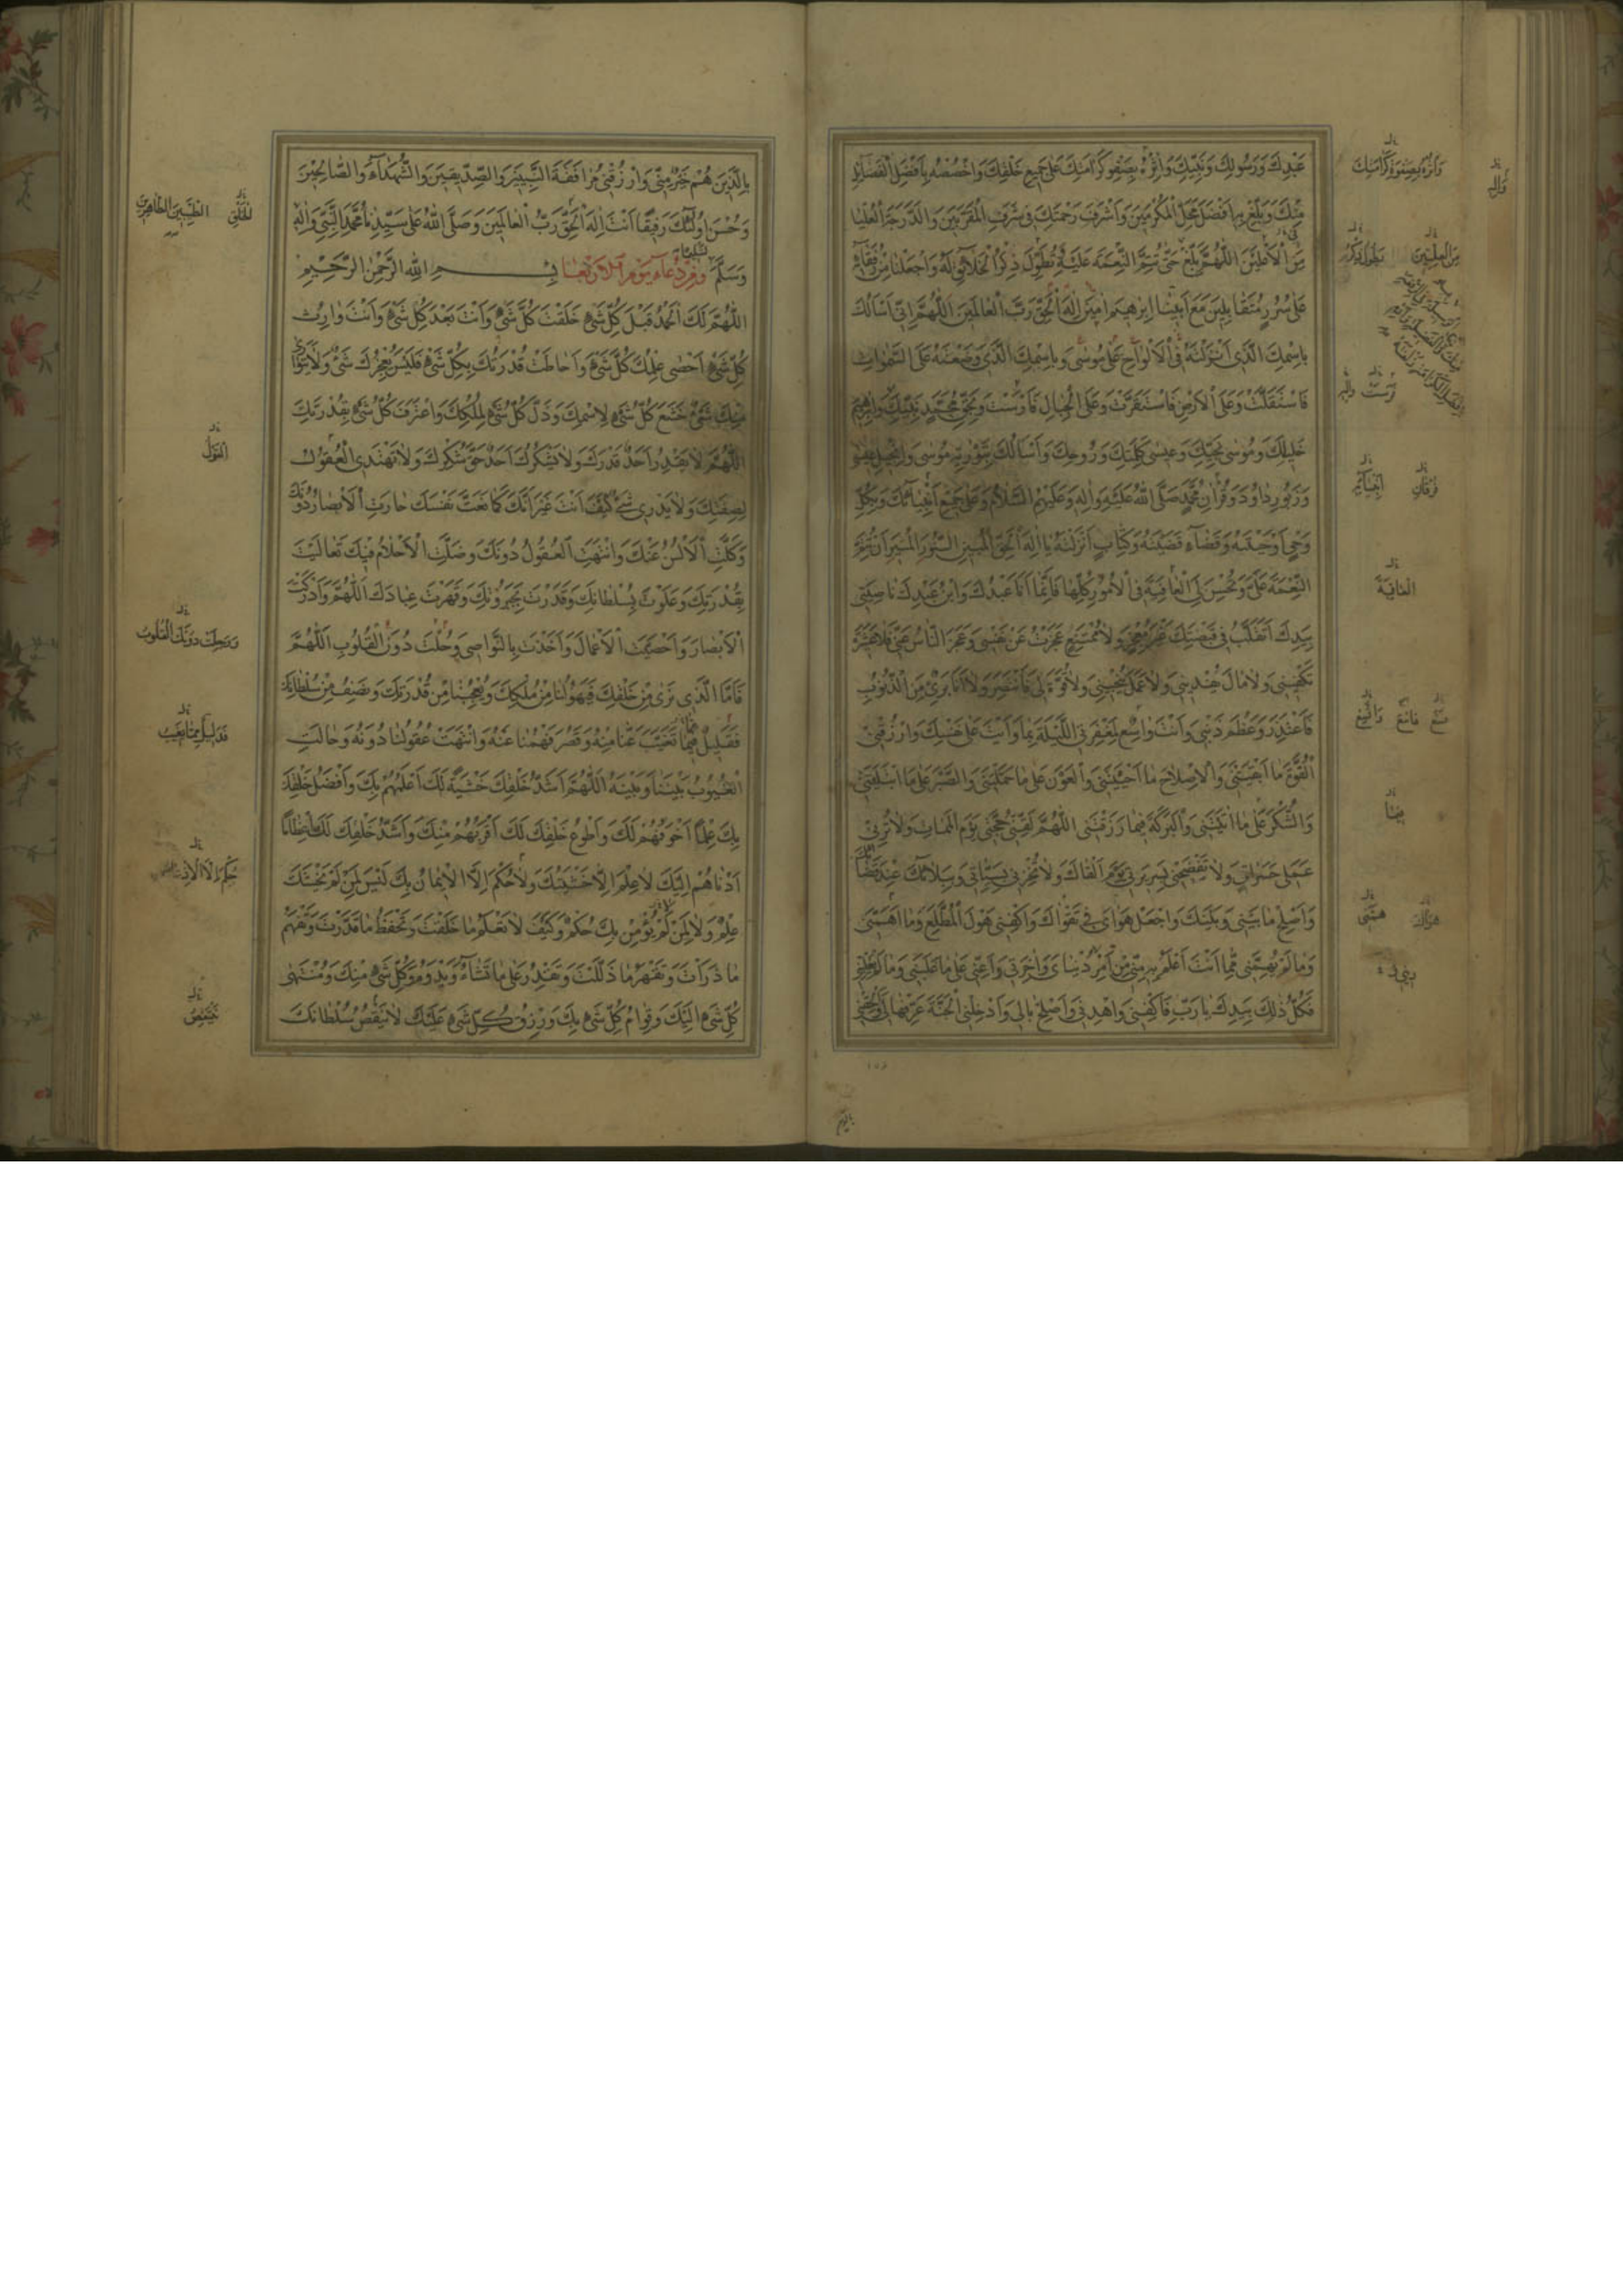 عَبْدِكَ وَرَسُولِكَ وَنَبِيِّكَ وَاٰثِرْهُ بِصَفْوِ كَرَامَتِكَ عَلٰى جَمِيعِ خَلْقِكَ وَاخْصُصْهُ بِاَفْضَلِ الْفَضَائِلِ
مِنْكَ وَبَلِّغْ بِهِ اَفْضَلَ مَحَلِّ الْمُكَرَّمِينَ وَاَشْرَفَ رَحْمَتِكَ فِي شَرَفِ الْمُقَرَّبِينَ وَالدَّرَجَةِ الْعُلْيَا
مِنَ الْاَعْلَيْنَ اَللّٰهُمَّ بَلِّغْ حَتّٰى تُتِمَّ النِّعْمَةَ عَلَيْهِ تُطَوِّلَ ذِكْرَ الْخَلَائِقِ لَهُ وَاجْعَلْنَا مِنْ رُفَقَائِهِ
عَلٰى سُرُرٍ مُتَقَابِلِينَ مَعَ اَبِينَا اِبْرٰهِيمَ اٰمِينَ اِلٰهَ الْحَقِّ رَبَّ الْعَالَمِينَ اَللّٰهُمَّ اِنِّي اَسْاَلُكَ
بِاسْمِكَ الَّذِي اَنْزَلْتَهُ فِي الْاَلْوَاحِ عَلٰى مُوسٰى وَبِاسْمِكَ الَّذِي وَضَعْتَهُ عَلَى السَّمٰوَاتِ
فَاسْتَقَلَّتْ وَعَلَى الْاَرْضِ فَاسْتَقَرَّتْ وَعَلَى الْجِبَالِ فَاَرْسَتْ وَبِحَقِّ مُحَمَّدٍ نَبِيِّكَ وَاِبْرٰهِيمَ
خَلِيلِكَ وَمُوسٰى نَجِيِّكَ وَعِيسٰى كَلِمَتِكَ وَرُوحِكَ وَاَسْاَلُكَ بِتَوْرٰيةِ مُوسٰى وَاِنْجِيلِ عِيسٰى
وَزَبُورِ دَاوُدَ وَقُرْاٰنِ مُحَمَّدٍ صَلَّى اللّٰهُ عَلَيْهِ وَاٰلِهِ وَعَلَيْهِمُ السَّلَامُ وَعَلٰى جَمِيعِ اَنْبِيَائِكَ وَبِكُلِّ
وَحْيٍ اَوْحَيْتَهُ وَقَضَاءٍ قَضَيْتَهُ وَكِتَابٍ اَنْزَلْتَهُ يَا اِلٰهَ الْحَقِّ الْمُبِينِ النُّورَ الْمُنِيرَ اَنْ تُتِمَّ
النِّعْمَةَ عَلَيَّ وَتُحْسِنَ لِيَ الْعَافِيَةَ فِي الْاُمُورِ كُلِّهَا فَاِنَّمَا اَنَا عَبْدُكَ وَابْنُ عَبْدِكَ نَاصِيَتِي
بِيَدِكَ اَتَقَلَّبُ فِي قَبْضَتِكَ غَيْرَ مُعْجِزٍ وَلَا مُمْتَنِعٍ عَجَزْتُ عَنْ نَفْسِي وَعَجَزَ النَّاسُ عَنِّي فَلَا عَشِيرَةَ
تَكْفِينِي وَلَا مَالَ يَفْدِينِي وَلَا عَمَلَ يُنْجِينِي وَلَا قُوَّةَ لِي فَاَنْتَصِرَ وَلَا اَنَا بَرِيٌّ مِنَ الذُّنُوبِ
فَاَعْتَذِرَ وَعَظُمَ ذَنْبِي وَاَنْتَ وَاسِعٌ لِمَغْفِرَتِي اللَّيْلَةَ بِمَا وَاَيْتَ عَلٰى نَفْسِكَ وَارْزُقْنِي
الْقُوَّةَ مَا اَبْقَيْتَنِي وَالْاِصْلَاحَ مَا اَحْيَيْتَنِي وَالْعَوْنَ عَلٰى مَا حَمَّلْتَنِي وَالصَّبْرَ عَلٰى مَا ابْتَلَيْتَنِي
وَالشُّكْرَ عَلٰى مَا اٰتَيْتَنِي وَالْبَرَكَةَ فِيمَا رَزَقْتَنِي اَللّٰهُمَّ لَقِّنِّي حُجَّتِي يَوْمَ الْمَمَاتِ وَلَا تُرِنِي
عَمَلِي حَسَرَاتٍ وَلَا تَفْضَحْنِي بِسَرِيرَتِي يَوْمَ اَلْقَاكَ وَلَا تُخْزِنِي بِسَيِّئَاتِي وَبِبَلَائِكَ عِنْدَ قَضَائِكَ
وَاَصْلِحْ مَا بَيْنِي وَبَيْنَكَ وَاجْعَلْ هَوَايَ فِي تَقْوَاكَ وَاكْفِنِي هَوْلَ الْمُطَّلَعِ وَمَا اَهَمَّنِي
وَمَا لَمْ يُهِمَّنِي مِمَّا اَنْتَ اَعْلَمُ بِهِ مِنِّي مِنْ اَمْرِ دُنْيَايَ وَاٰخِرَتِي وَاَعِنِّي عَلٰى مَا غَلَبَنِي وَمَا لَمْ يَغْلِبْنِي
فَكُلُّ ذٰلِكَ بِيَدِكَ يَا رَبِّ فَاكْفِنِي وَاهْدِنِي وَاَصْلِحْ بَالِي وَاَدْخِلْنِي الْجَنَّةَ عَرِّفْهَا لِي وَاَلْحِقْنِي
وَاٰلِهِ
وَاٰثِرْهُ بِصَفْوَةِ كَرَامَتِكَ
الْعَافِيَةَ
بِالَّذِينَ هُمْ خَيْرٌ مِنِّي وَارْزُقْنِي مُرَافَقَةَ النَّبِيِّينَ وَالصِّدِّيقِينَ وَالشُّهَدَاءِ وَالصَّالِحِينَ
وَحَسُنَ اُولٰئِكَ رَفِيقًا اَنْتَ اِلٰهُ الْحَقِّ رَبُّ الْعَالَمِينَ وَصَلَّى اللّٰهُ عَلٰى سَيِّدِنَا مُحَمَّدٍ النَّبِيِّ وَاٰلِهِ
وَسَلَّمَ تَسْلِيمًا وَمِنْ دُعَاءِ يَوْمِ الْاَرْبِعَا بِسْمِ اللّٰهِ الرَّحْمٰنِ الرَّحِيمِ
اَللّٰهُمَّ لَكَ الْحَمْدُ قَبْلَ كُلِّ شَيْءٍ خَلَقْتَ كُلَّ شَيْءٍ وَاَنْتَ بَعْدَ كُلِّ شَيْءٍ وَاَنْتَ وَارِثُ
كُلِّ شَيْءٍ اَحْصٰى عِلْمُكَ كُلَّ شَيْءٍ وَاَحَاطَتْ قُدْرَتُكَ بِكُلِّ شَيْءٍ فَلَيْسَ يُعْجِزُكَ شَيْءٌ وَلَا يَتَوَارٰى
مِنْكَ شَيْءٌ خَشَعَ كُلُّ شَيْءٍ لِاسْمِكَ وَذَلَّ كُلُّ شَيْءٍ لِمُلْكِكَ وَاعْتَرَفَ كُلُّ شَيْءٍ بِقُدْرَتِكَ
اَللّٰهُمَّ لَا يَقْدِرُ اَحَدٌ قَدْرَكَ وَلَا يَشْكُرُكَ اَحَدٌ حَقَّ شُكْرِكَ وَلَا تَهْتَدِي الْعُقُولُ
لِصِفَتِكَ وَلَا يَدْرِي شَيْءٌ كَيْفَ اَنْتَ غَيْرَ اَنَّكَ كَمَا نَعَتَّ نَفْسَكَ حَارَتِ الْاَبْصَارُ دُونَكَ
وَكَلَّتِ الْاَلْسُنُ عَنْكَ وَانْتَهَتِ الْعُقُولُ دُونَكَ وَضَلَّتِ الْاَحْلَامُ فِيكَ تَعَالَيْتَ
بِقُدْرَتِكَ وَعَلَوْتَ بِسُلْطَانِكَ وَقَدَرْتَ بِجَبَرُوتِكَ وَقَهَرْتَ عِبَادَكَ اَللّٰهُمَّ وَاَدْرَكْتَ
الْاَبْصَارَ وَاَحْصَيْتَ الْاَعْمَالَ وَاَخَذْتَ بِالنَّوَاصِي وَحُلْتَ دُونَ الْقُلُوبِ اَللّٰهُمَّ
فَاَمَّا الَّذِي نَرٰى مِنْ خَلْقِكَ فَيَهُولُنَا مِنْ مُلْكِكَ وَيُعْجِبُنَا مِنْ قُدْرَتِكَ وَنَصِفُ مِنْ سُلْطَانِكَ
فَقَلِيلٌ فِيمَا تَغَيَّبَ عَنَّا مِنْهُ وَقَصُرَ فَهْمُنَا عَنْهُ وَانْتَهَتْ عُقُولُنَا دُونَهُ وَحَالَتِ
الْغُيُوبُ بَيْنَنَا وَبَيْنَهُ اَللّٰهُمَّ اَشَدُّ خَلْقِكَ خَشْيَةً لَكَ اَعْلَمُهُمْ بِكَ وَاَفْضَلُ خَلْقِكَ
بِكَ عِلْمًا اَخْوَفُهُمْ لَكَ وَاَطْوَعُ خَلْقِكَ لَكَ اَقْرَبُهُمْ مِنْكَ وَاَشَدُّ خَلْقِكَ لَكَ اِعْظَامًا
اَدْنَاهُمْ اِلَيْكَ لَا عِلْمَ اِلَّا خَشْيَتُكَ وَلَا حُكْمَ اِلَّا الْاِيمَانُ بِكَ لَيْسَ لِمَنْ لَمْ يَخْشَكَ
عِلْمٌ وَلَا لِمَنْ لَمْ يُؤْمِنْ بِكَ حُكْمٌ وَكَيْفَ لَا تَعْلَمُ مَا خَلَقْتَ وَتَحْفَظُ مَا قَدَّرْتَ وَتَفْهَمُ
مَا ذَرَاْتَ وَتَقْهَرُ مَا ذَلَّلْتَ وَتَقْدِرُ عَلٰى مَا تَشَاءُ وَبَدْوُ كُلِّ شَيْءٍ مِنْكَ وَمُنْتَهٰى
كُلِّ شَيْءٍ اِلَيْكَ وَقِوَامُ كُلِّ شَيْءٍ بِكَ وَرِزْقُ كُلِّ شَيْءٍ عَلَيْكَ لَا يَنْقُصُ سُلْطَانَكَ
الطَّيِّبِينَ الطَّاهِرِينَ